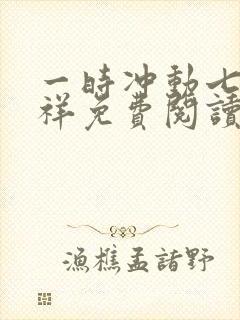 一時冲動七
祥免費閱讀
漁樵孟諸野